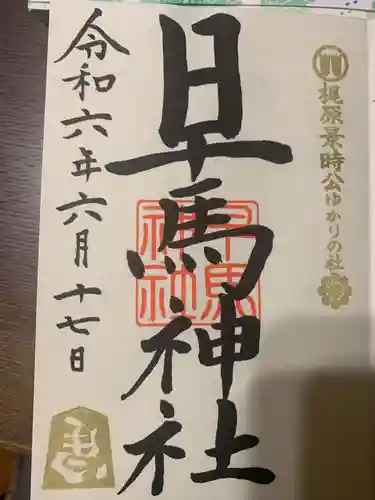 梶原景時公ゆかりの社
早馬神社
早馬神社
令和六年六月十七日